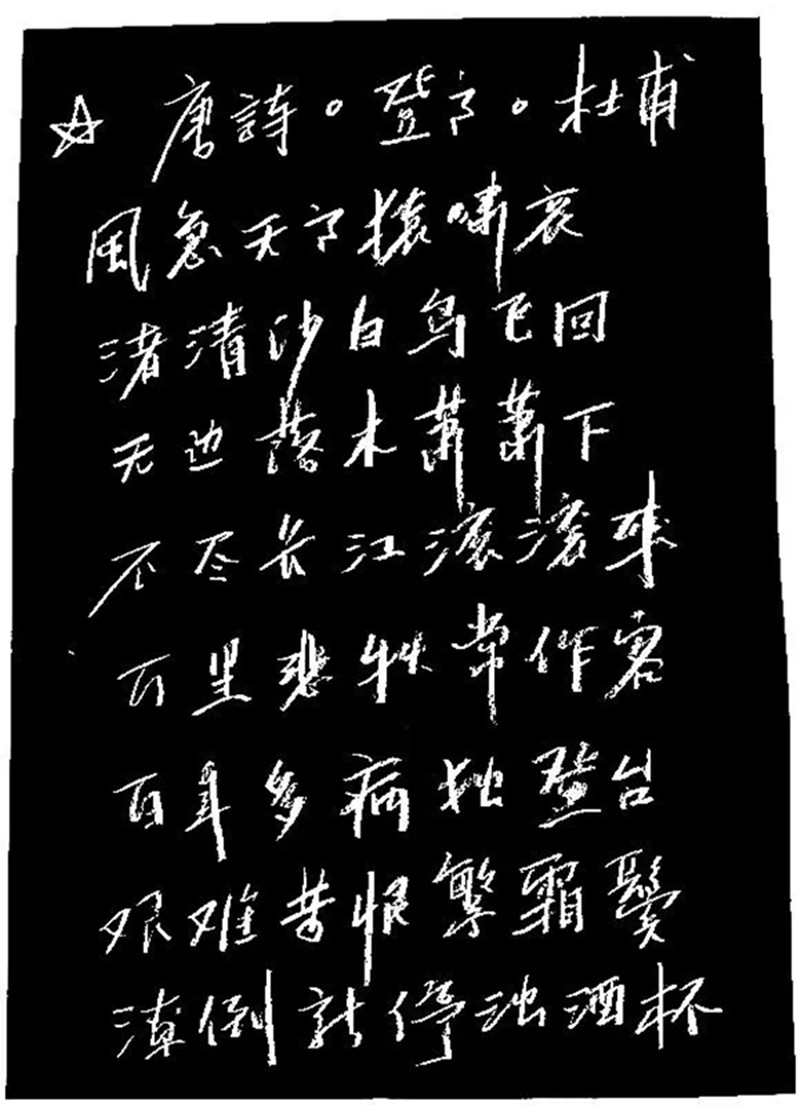 ☆ 唐詩。登高。杜甫
風急天高猿啸哀
渚清沙白鸟飞回
无边落木萧萧下
不尽长江滚滚来
万里悲秋常作客
百年多病独登台
艰难苦恨繁霜鬓
潦倒新停浊酒杯